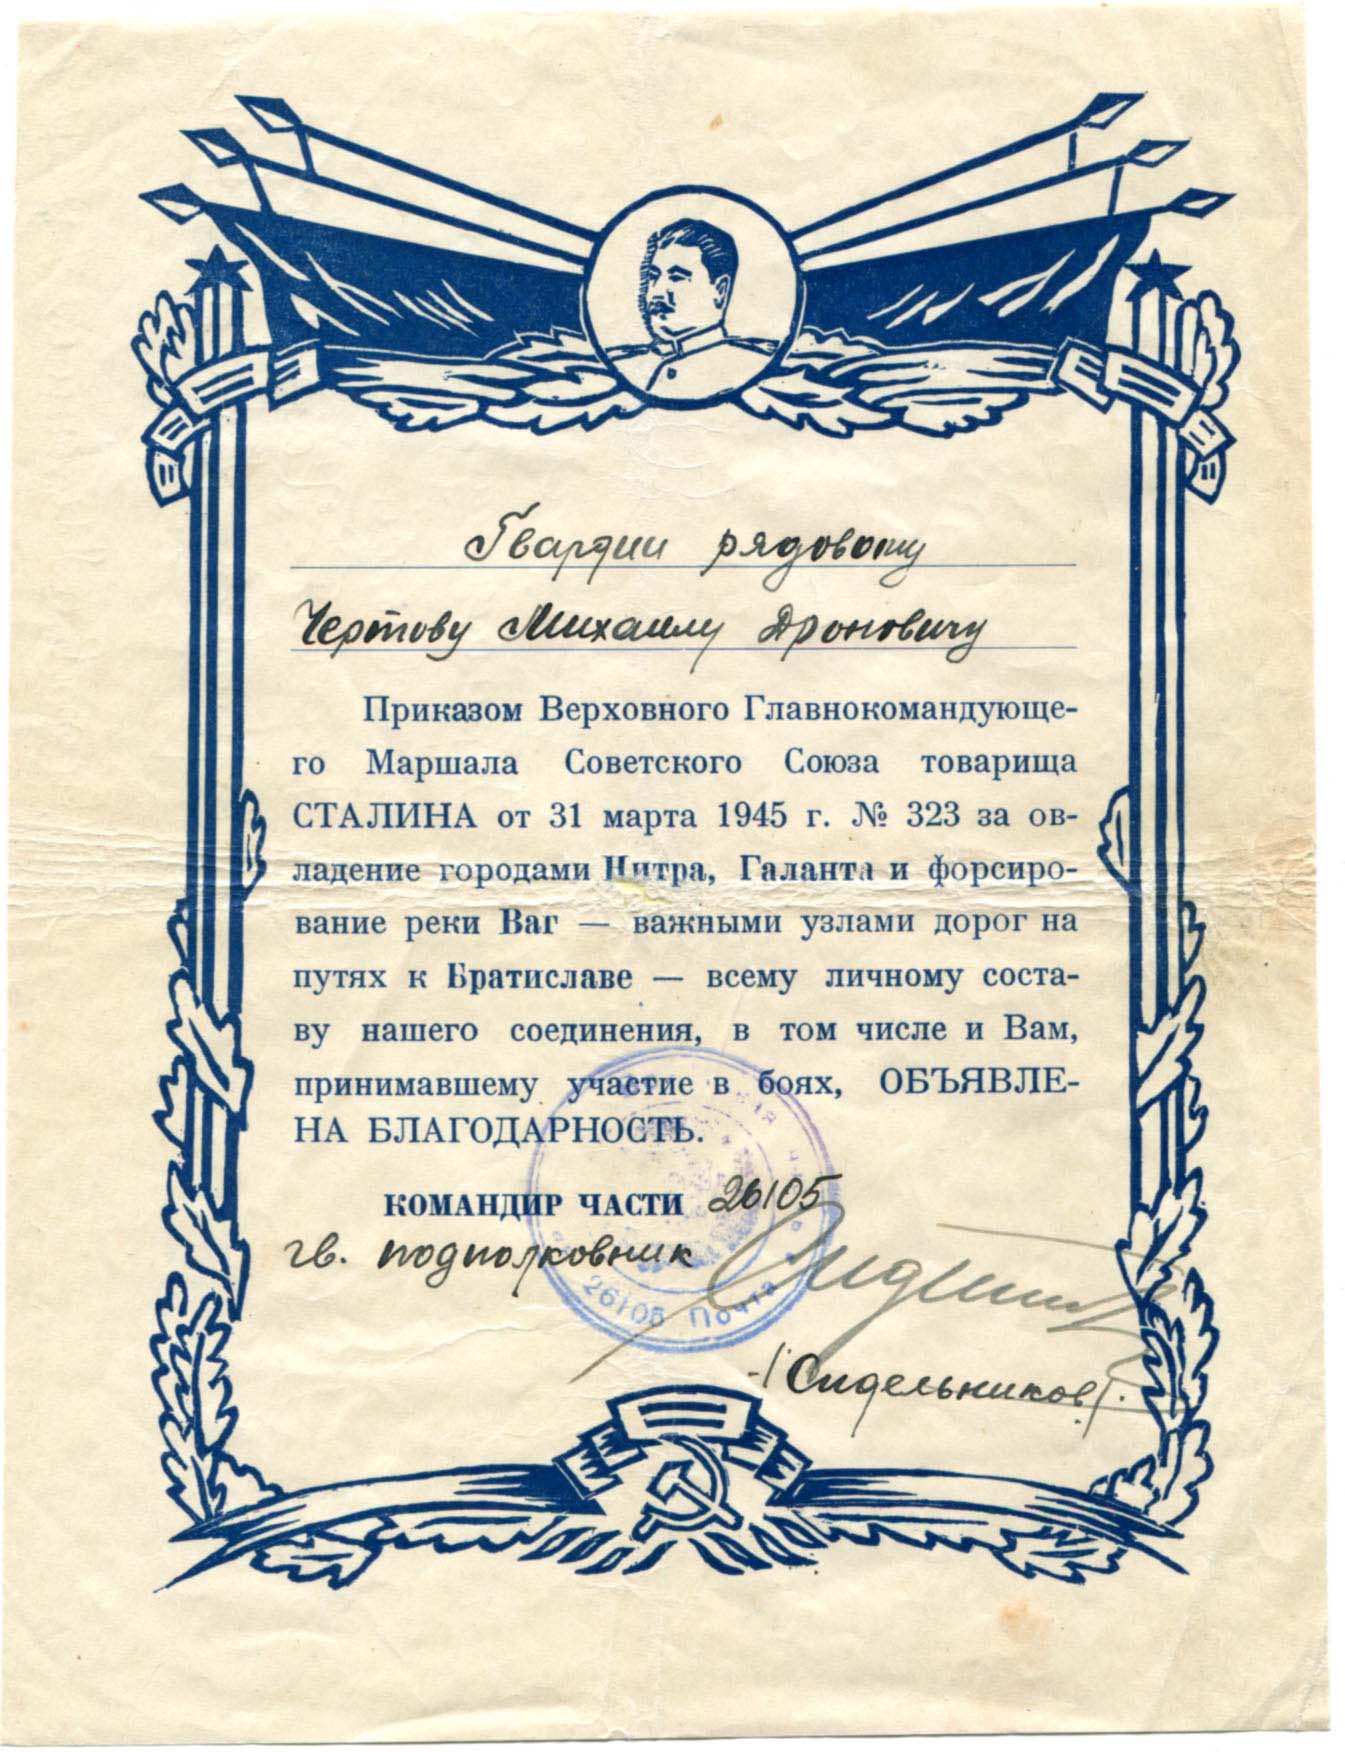 Гвардии рядовому
Чертову Михаилу Дроновичу
Приказом Верховного Главнокомандующе-
го Маршала Советского Союза товарища
СТАЛИНА от 31 марта 1945 г. № 323 за ов-
ладение городами Нитра, Галанта и форсиро-
вание реки Ваг — важными узлами дорог на
путях к Братиславе — всему личному соста-
ву нашего соединения, в том числе и Вам,
принимавшему участие в боях, ОБЪЯВЛЕ-
НА БЛАГОДАРНОСТЬ.
КОМАНДИР ЧАСТИ 26105
гв. подполковник
(Сидельников).
26105 Почта